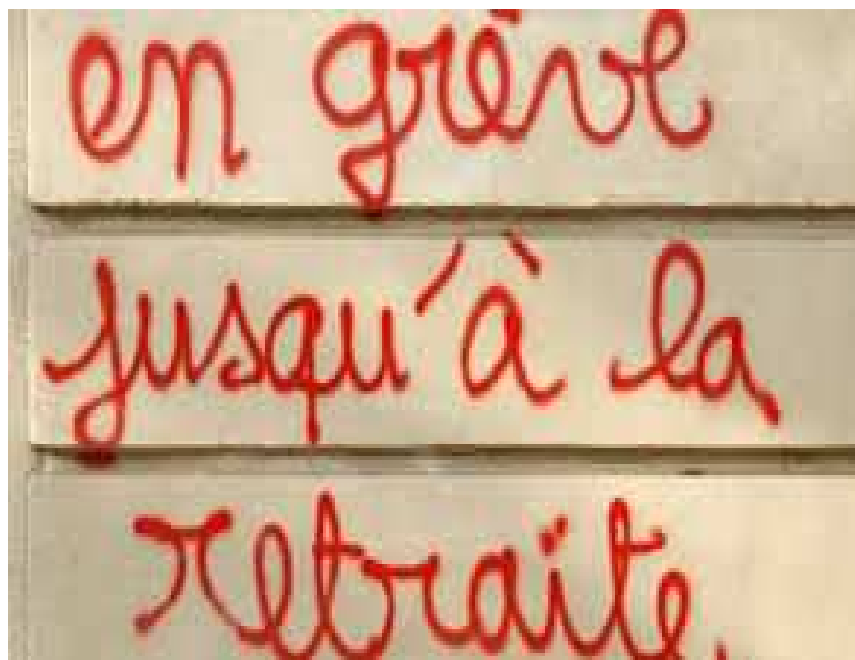 en grève
jusqu'à la
retraite.